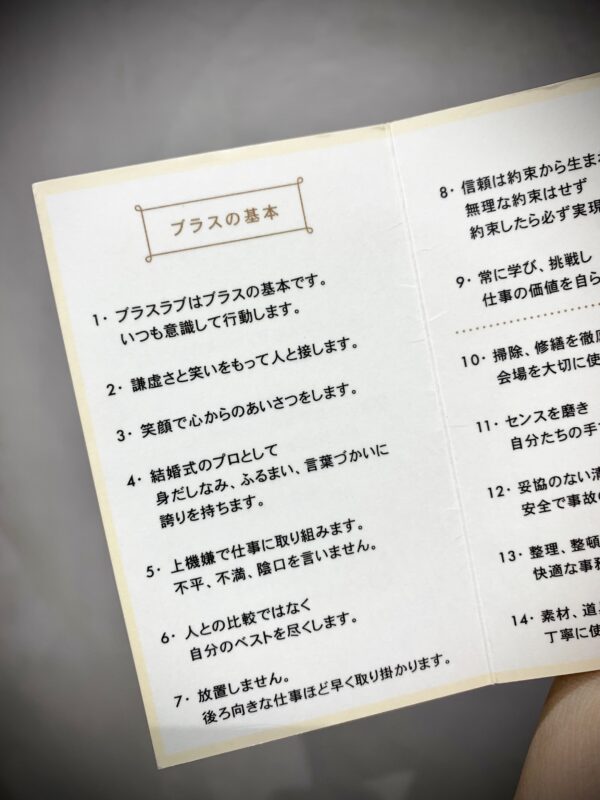 プラスの基本
1・プラスラブはプラスの基本です。
いつも意識して行動します。
2・謙虚さと笑いをもって人と接します。
3・笑顔で心からのあいさつをします。
4・結婚式のプロとして
身だしなみ、ふるまい、言葉づかいに
誇りを持ちます。
5・上機嫌で仕事に取り組みます。
不平、不満、陰口を言いません。
6・人との比較ではなく
自分のベストを尽くします。
7・放置しません。
後ろ向きな仕事ほど早く取り掛かります。
8・信頼は約束から生まれ
無理な約束はせず
約束したら必ず実現
9・常に学び、挑戦し
仕事の価値を自ら
10・掃除、修繕を徹底
会場を大切に使
11・センスを磨き
自分たちの手
12・妥協のない清
安全で事故の
13・整理、整頓
快適な事務
14・素材、道具
丁寧に使